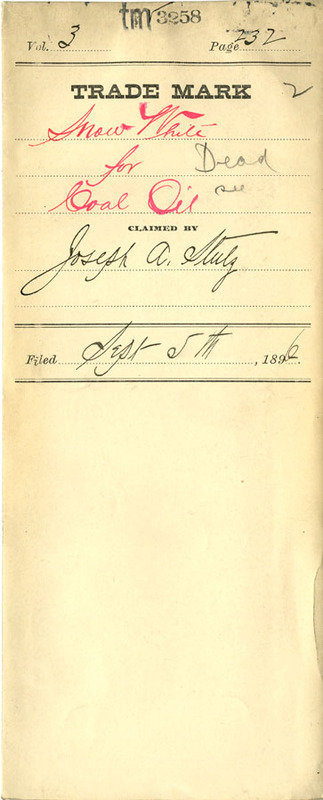 tm 3258
Vol. 3 Page 232
TRADE MARK 2
Snow White
for Dead
Coal Oil
CLAIMED BY
Joseph A. Stutz
Filed Sept 5th, 1896